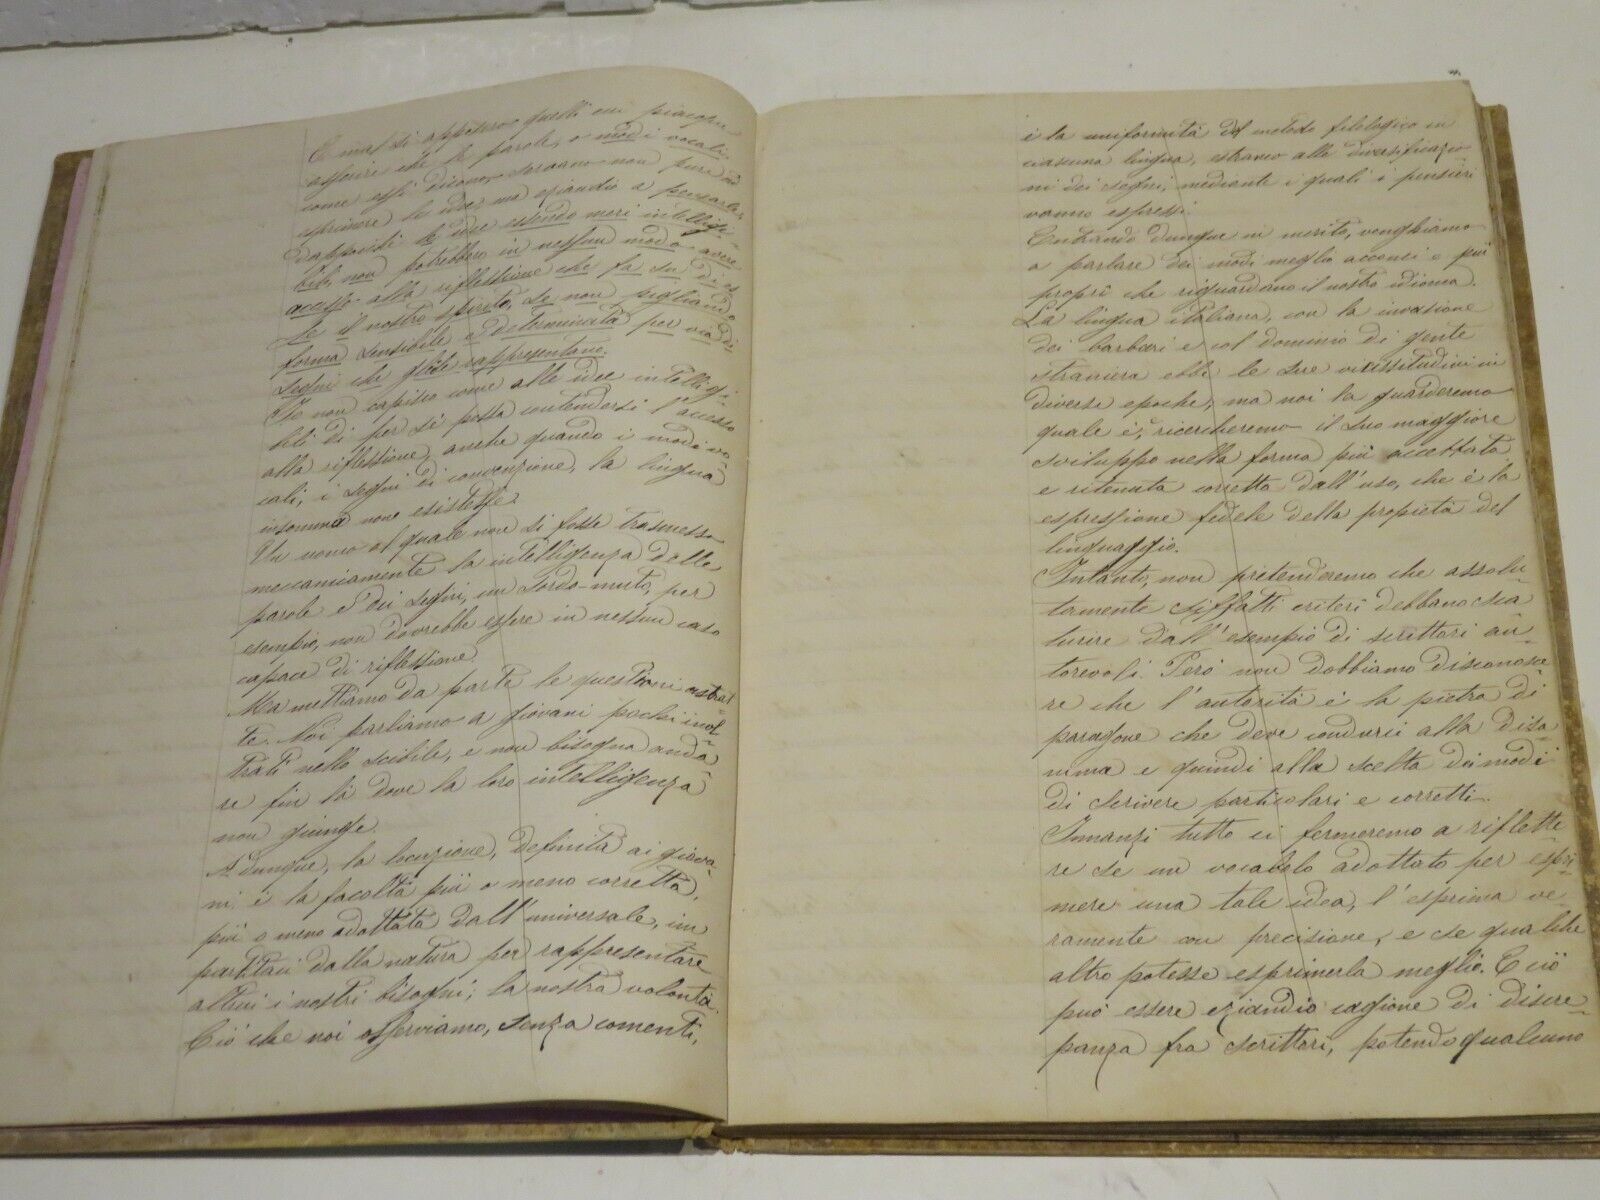 E mal si apposero quelli cui piacque
asserire che le parole, o modi vocali
come essi dicono, servano non pure ad
esprimere le idee ma eziandio a pensarle,
dappoiché le idee essendo meri intelligi-
bili, non potrebbero in nessun modo avere
accesso alla riflessione che fa su di es
se il nostro spirito, se non pigliando
forma sensibile e determinata per via di
segni che gliele rappresentano.
Io non capisco come alle idee intelligi-
bili di per sé possa contendersi l'accesso
alla riflessione, anche quando i modi vo
cali, i segni di convenzione, la lingua
insomma non esistesse.
Un uomo al quale non si fosse trasmessa
meccanicamente la intelligenza delle
parole e dei segni, un sordo-muto, per
esempio, non dovrebbe essere in nessun caso
capace di riflessione.
Ma mettiamo da parte le questioni astrat
te. Noi parliamo a giovani pochi inol-
trati nello scibile, e non bisogna anda
re fin là dove la loro intelligenza
non giunge.
Adunque, la locuzione, definita ai giova-
ni, è la facoltà più o meno corretta,
più o meno adottata dall'universale, im
partitaci dalla natura per rappresentare
altrui i nostri bisogni; la nostra volontà.
Ciò che noi osserviamo, senza comenti,
è la uniformità del metodo filologico in
ciascuna lingua, estraneo alle diversificazio
ni dei segni, mediante i quali i pensieri
vanno espressi.
Entrando dunque in merito, venghiamo
a parlare dei modi meglio acconci e più
propri che riguardano il nostro idioma.
La lingua italiana, con la invasione
dei barbari e col dominio di gente
straniera ebbe le sue vicissitudini in
diverse epoche; ma noi la guarderemo
quale è, ricercheremo il suo maggiore
sviluppo nella forma più accettata
e ritenuta corretta dall'uso, che è la
espressione fedele della propietà del
linguaggio.
Intanto, non pretenderemo che assolu-
tamente siffatti criteri debbano sca
turire dall'esempio di scrittori au-
torevoli. Però non dobbiamo disconosce
re che l'autorità è la pietra di
paragone che deve condurci alla disa-
mina e quindi alla scelta dei modi
di scrivere particolari e corretti.
Innanzi tutto ci fermeremo a riflette
re se un vocabolo adottato per espri-
mere una tale idea, l'esprima ve-
ramente con precisione, e se qualche
altro potesse esprimerla meglio. E ciò
può essere eziandio cagione di discre-
panza fra scrittori, potendo qualcuno